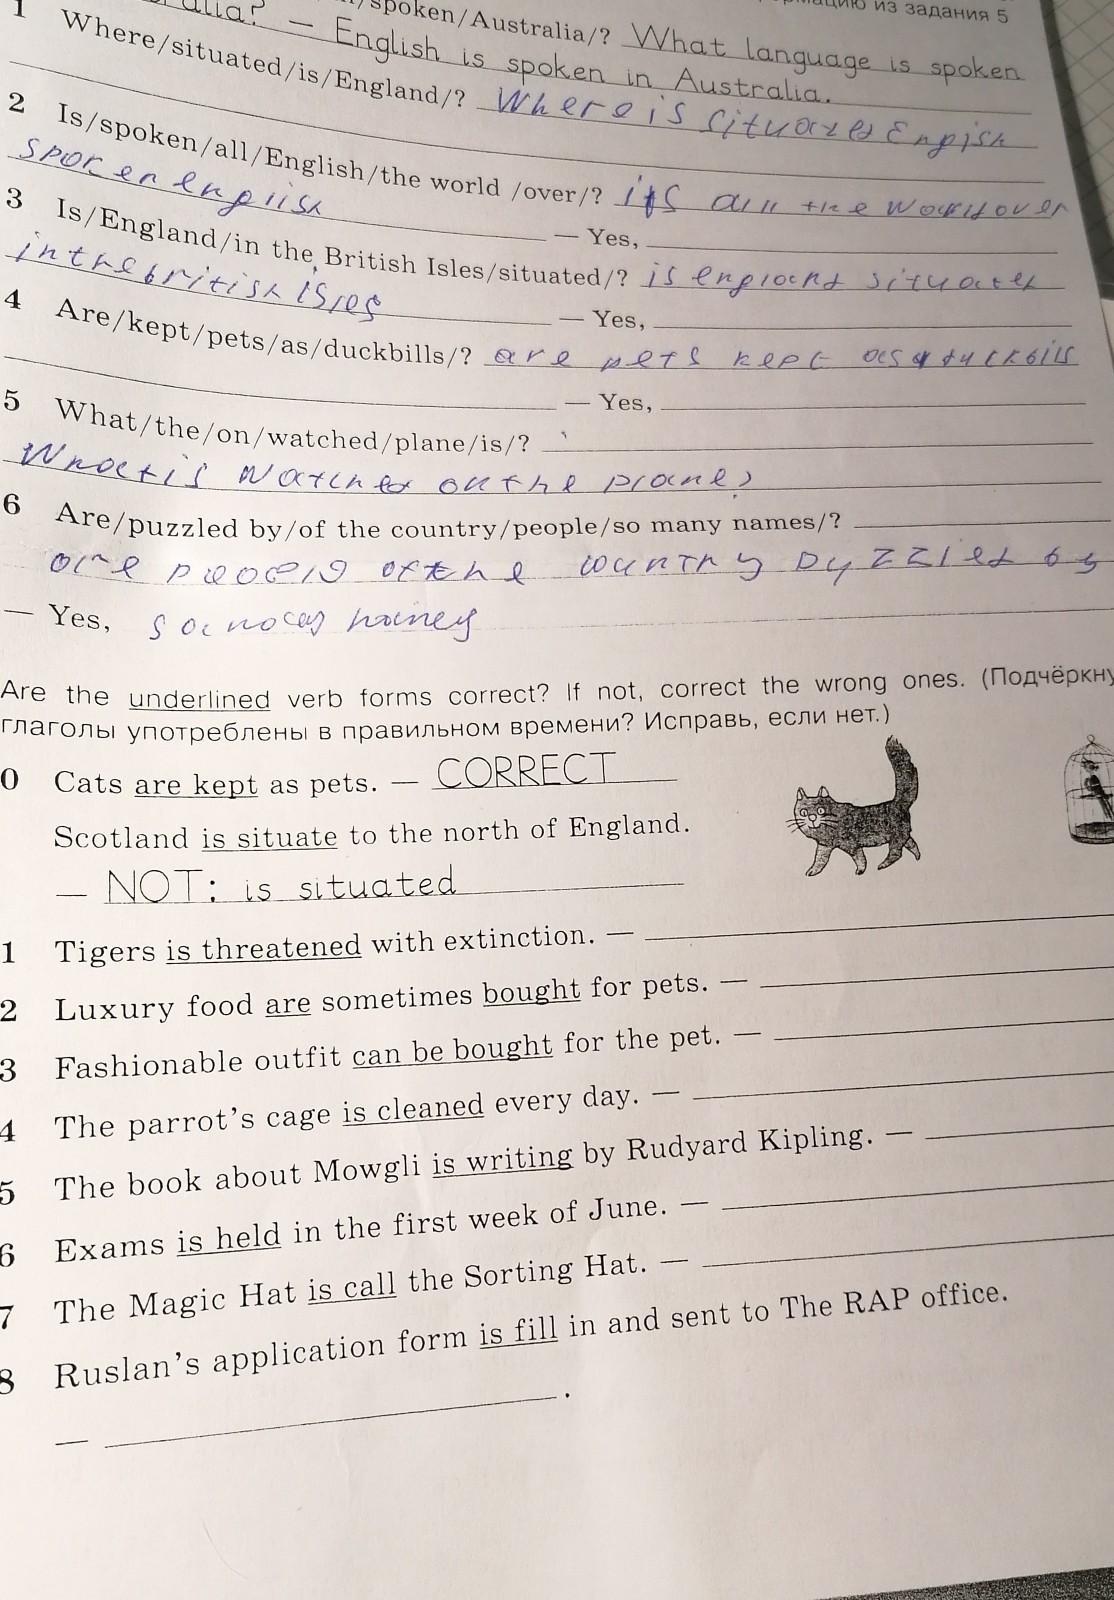 из задания 5
spoken/Australia/? What language is spoken
– English is spoken in Australia.
1 Where/situated/is/England/? Where is
2 Is/spoken/all/English/the world /over/? all the over
spoken
– Yes,
3 Is/England/in the British Isles/situated/? is situated
in the british isles
– Yes,
4 Are/kept/pets/as/duckbills/? are pets kept as
– Yes,
5 What/the/on/watched/plane/is/?
What is watched on the plane?
6 Are/puzzled by/of the country/people/so many names/?
are of the country by
– Yes,
Are the underlined verb forms correct? If not, correct the wrong ones. (Подчёркну
глаголы употреблены в правильном времени? Исправь, если нет.)
0 Cats are kept as pets. — CORRECT
Scotland is situate to the north of England.
— NOT: is situated
1 Tigers is threatened with extinction. —
2 Luxury food are sometimes bought for pets. —
3 Fashionable outfit can be bought for the pet. —
4 The parrot's cage is cleaned every day. —
5 The book about Mowgli is writing by Rudyard Kipling. —
6 Exams is held in the first week of June. —
7 The Magic Hat is call the Sorting Hat. —
8 Ruslan's application form is fill in and sent to The RAP office.
— .